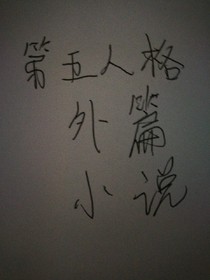 第五人格
外篇
小说